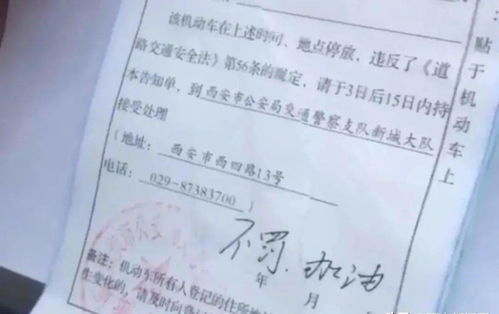 该机动车在上述时间、地点停放，违反了《道
路交通安全法》第56条的规定，请于3日后15日内持
本告知单，到西安市公安局交通警察支队新城大队
接受处理
（地址：西安市西四路13号
电话：029-87383700）
不罚.加油
年 月
备注：机动车所有人登记的住所地
生变化的，请及时向登
贴于机动车上